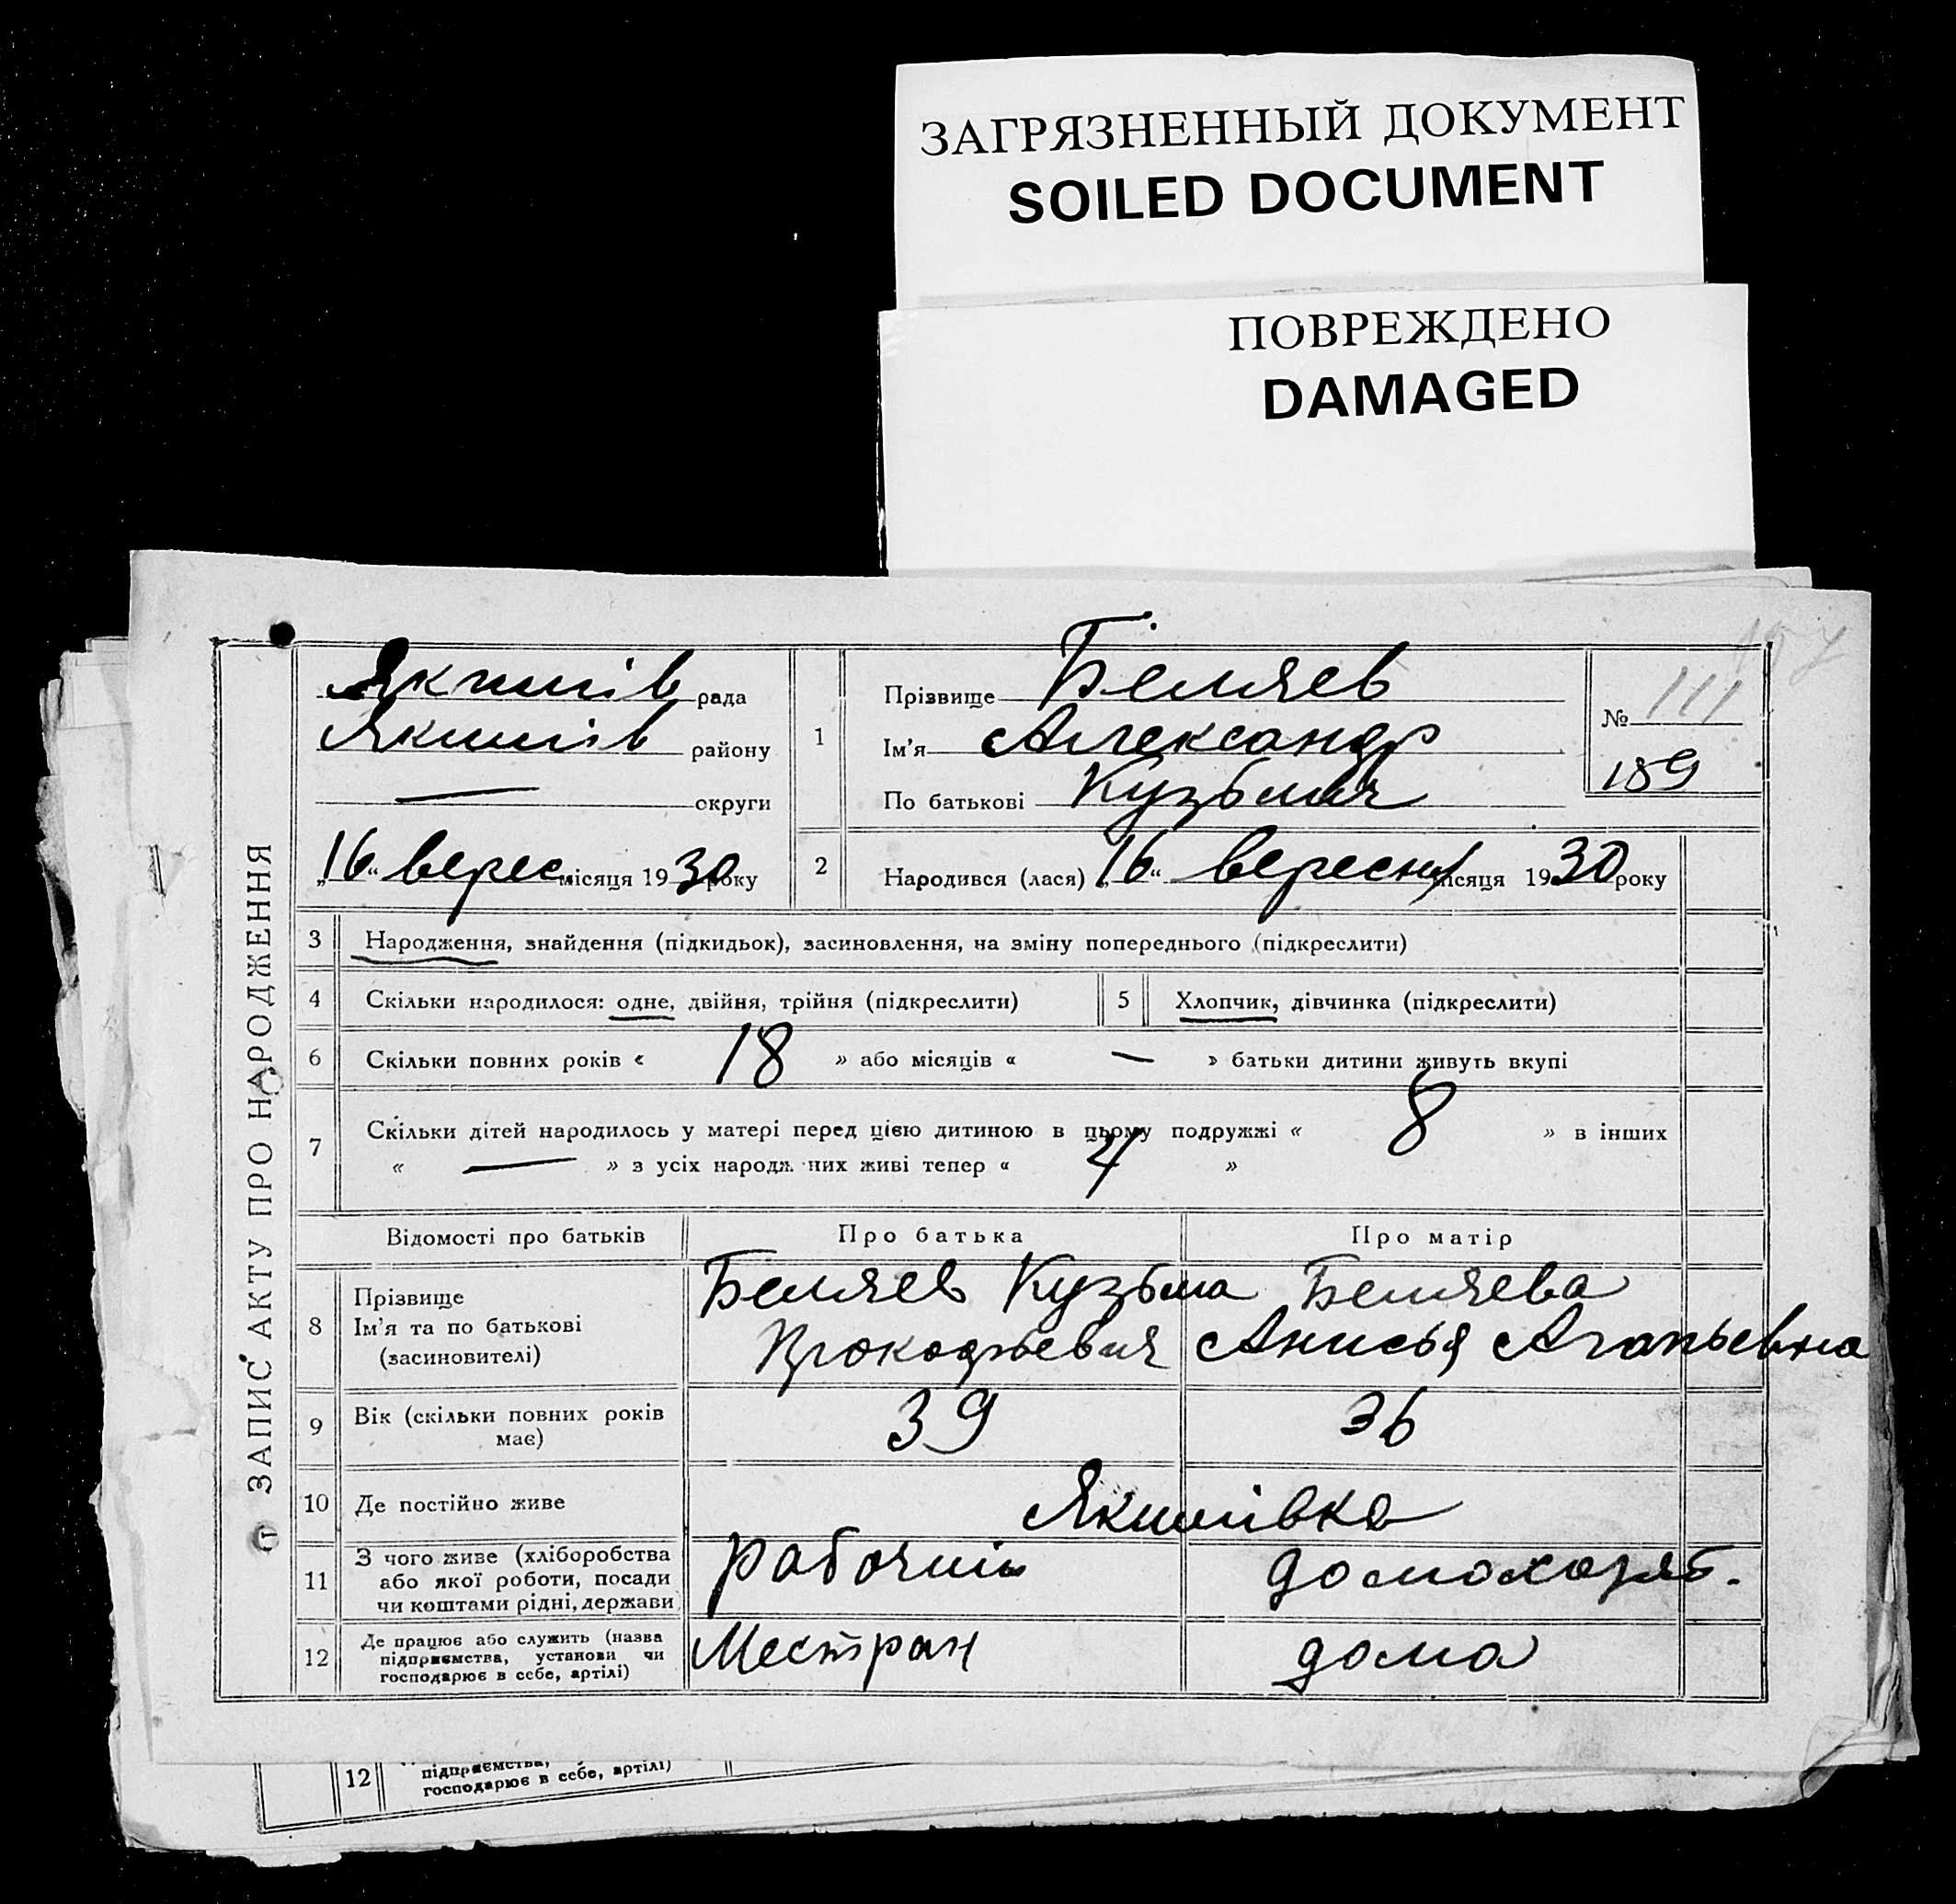 ЗАГРЯЗНЕННЫЙ ДОКУМЕНТ
SOILED DOCUMENT
ПОВРЕЖДЕНО
DAMAGED
ЗАПИС АКТУ ПРО НАРОДЖЕННЯ
Якимів рада
Якимів району
— округи
„16“ верес місяця 1930 року
1
Прізвище Беляев
Ім'я Александр
По батькові Кузьмич
№ 111
189
2
Народився (лася) „16“ вересня місяця 1930 року
3 Народження, знайдення (підкидьок), засиновлення, на зміну попереднього (підкреслити)
4 Скільки народилося: одне, двійня, трійня (підкреслити) 5 Хлопчик, дівчинка (підкреслити)
6 Скільки повних років « 18 » або місяців « — » батьки дитини живуть вкупі
7 Скільки дітей народилось у матері перед цією дитиною в цьому подружжі « 8 » в інших
« — » з усіх народж них живі тепер « 4 »
Відомості про батьків Про батька Про матір
8 Прізвище
Ім'я та по батькові
(засиновителі)
Беляев Кузьма
Прокофьевич
Беляева
Анисья Агапьевна
9 Вік (скільки повних років
має)
39 36
10 Де постійно живе Якимівка
11 З чого живе (хліборобства
або якої роботи, посади
чи коштами рідні, держави
рабочий домохозяб.
12 Де працює або служить (назва
підприємства, установи чи
господарює в себе, артілі)
Местран дома
12 підприємства,
господарює в себе, артілі)